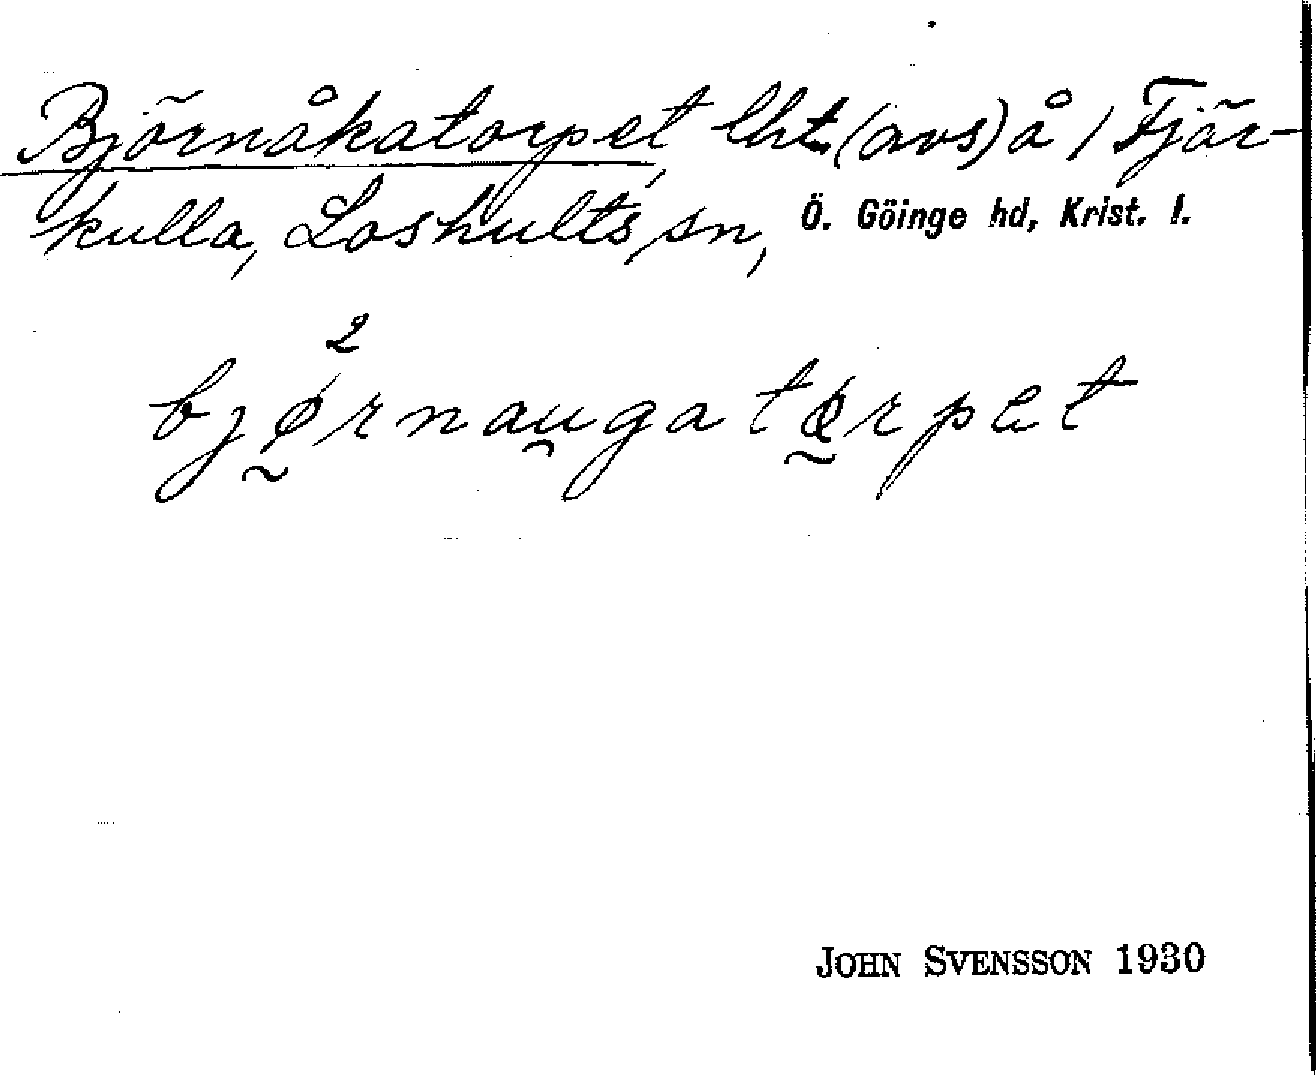 Björnåkatorpet, lht. (avs) å 1 Fjär-
kulla, Loshults sn, Ö. Göinge hd, Krist. l.
2
bjø̰rnau̯gatø̰rpet
JOHN SVENSSON 1930